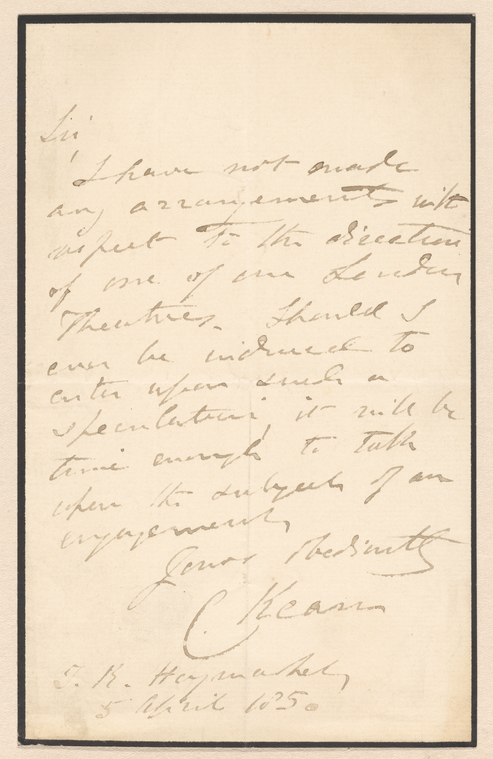 Sir,
I have not made
any arrangements with
respect to the direction
of one of our London
Theatres. Should I
ever be induced to
enter upon such a
speculation, it will be
time enough to talk
upon the subject of an
engagement.
Yours obediently
C. Kean
T. R. Haymarket,
5 April 1850